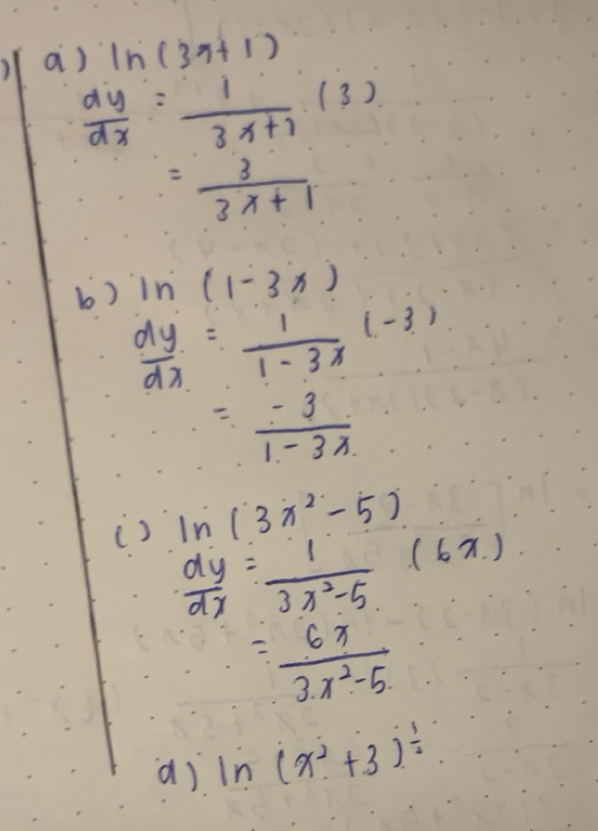 a) ln (3x+1)
dy/dx = 1/(3x+1) (3)
= 3/(3x+1)
b) ln (1-3x)
dy/dx = 1/(1-3x) (-3)
= -3/(1-3x)
c) ln (3x²-5)
dy/dx = 1/(3x²-5) (6x)
= 6x/(3x²-5)
d) ln (x²+3)